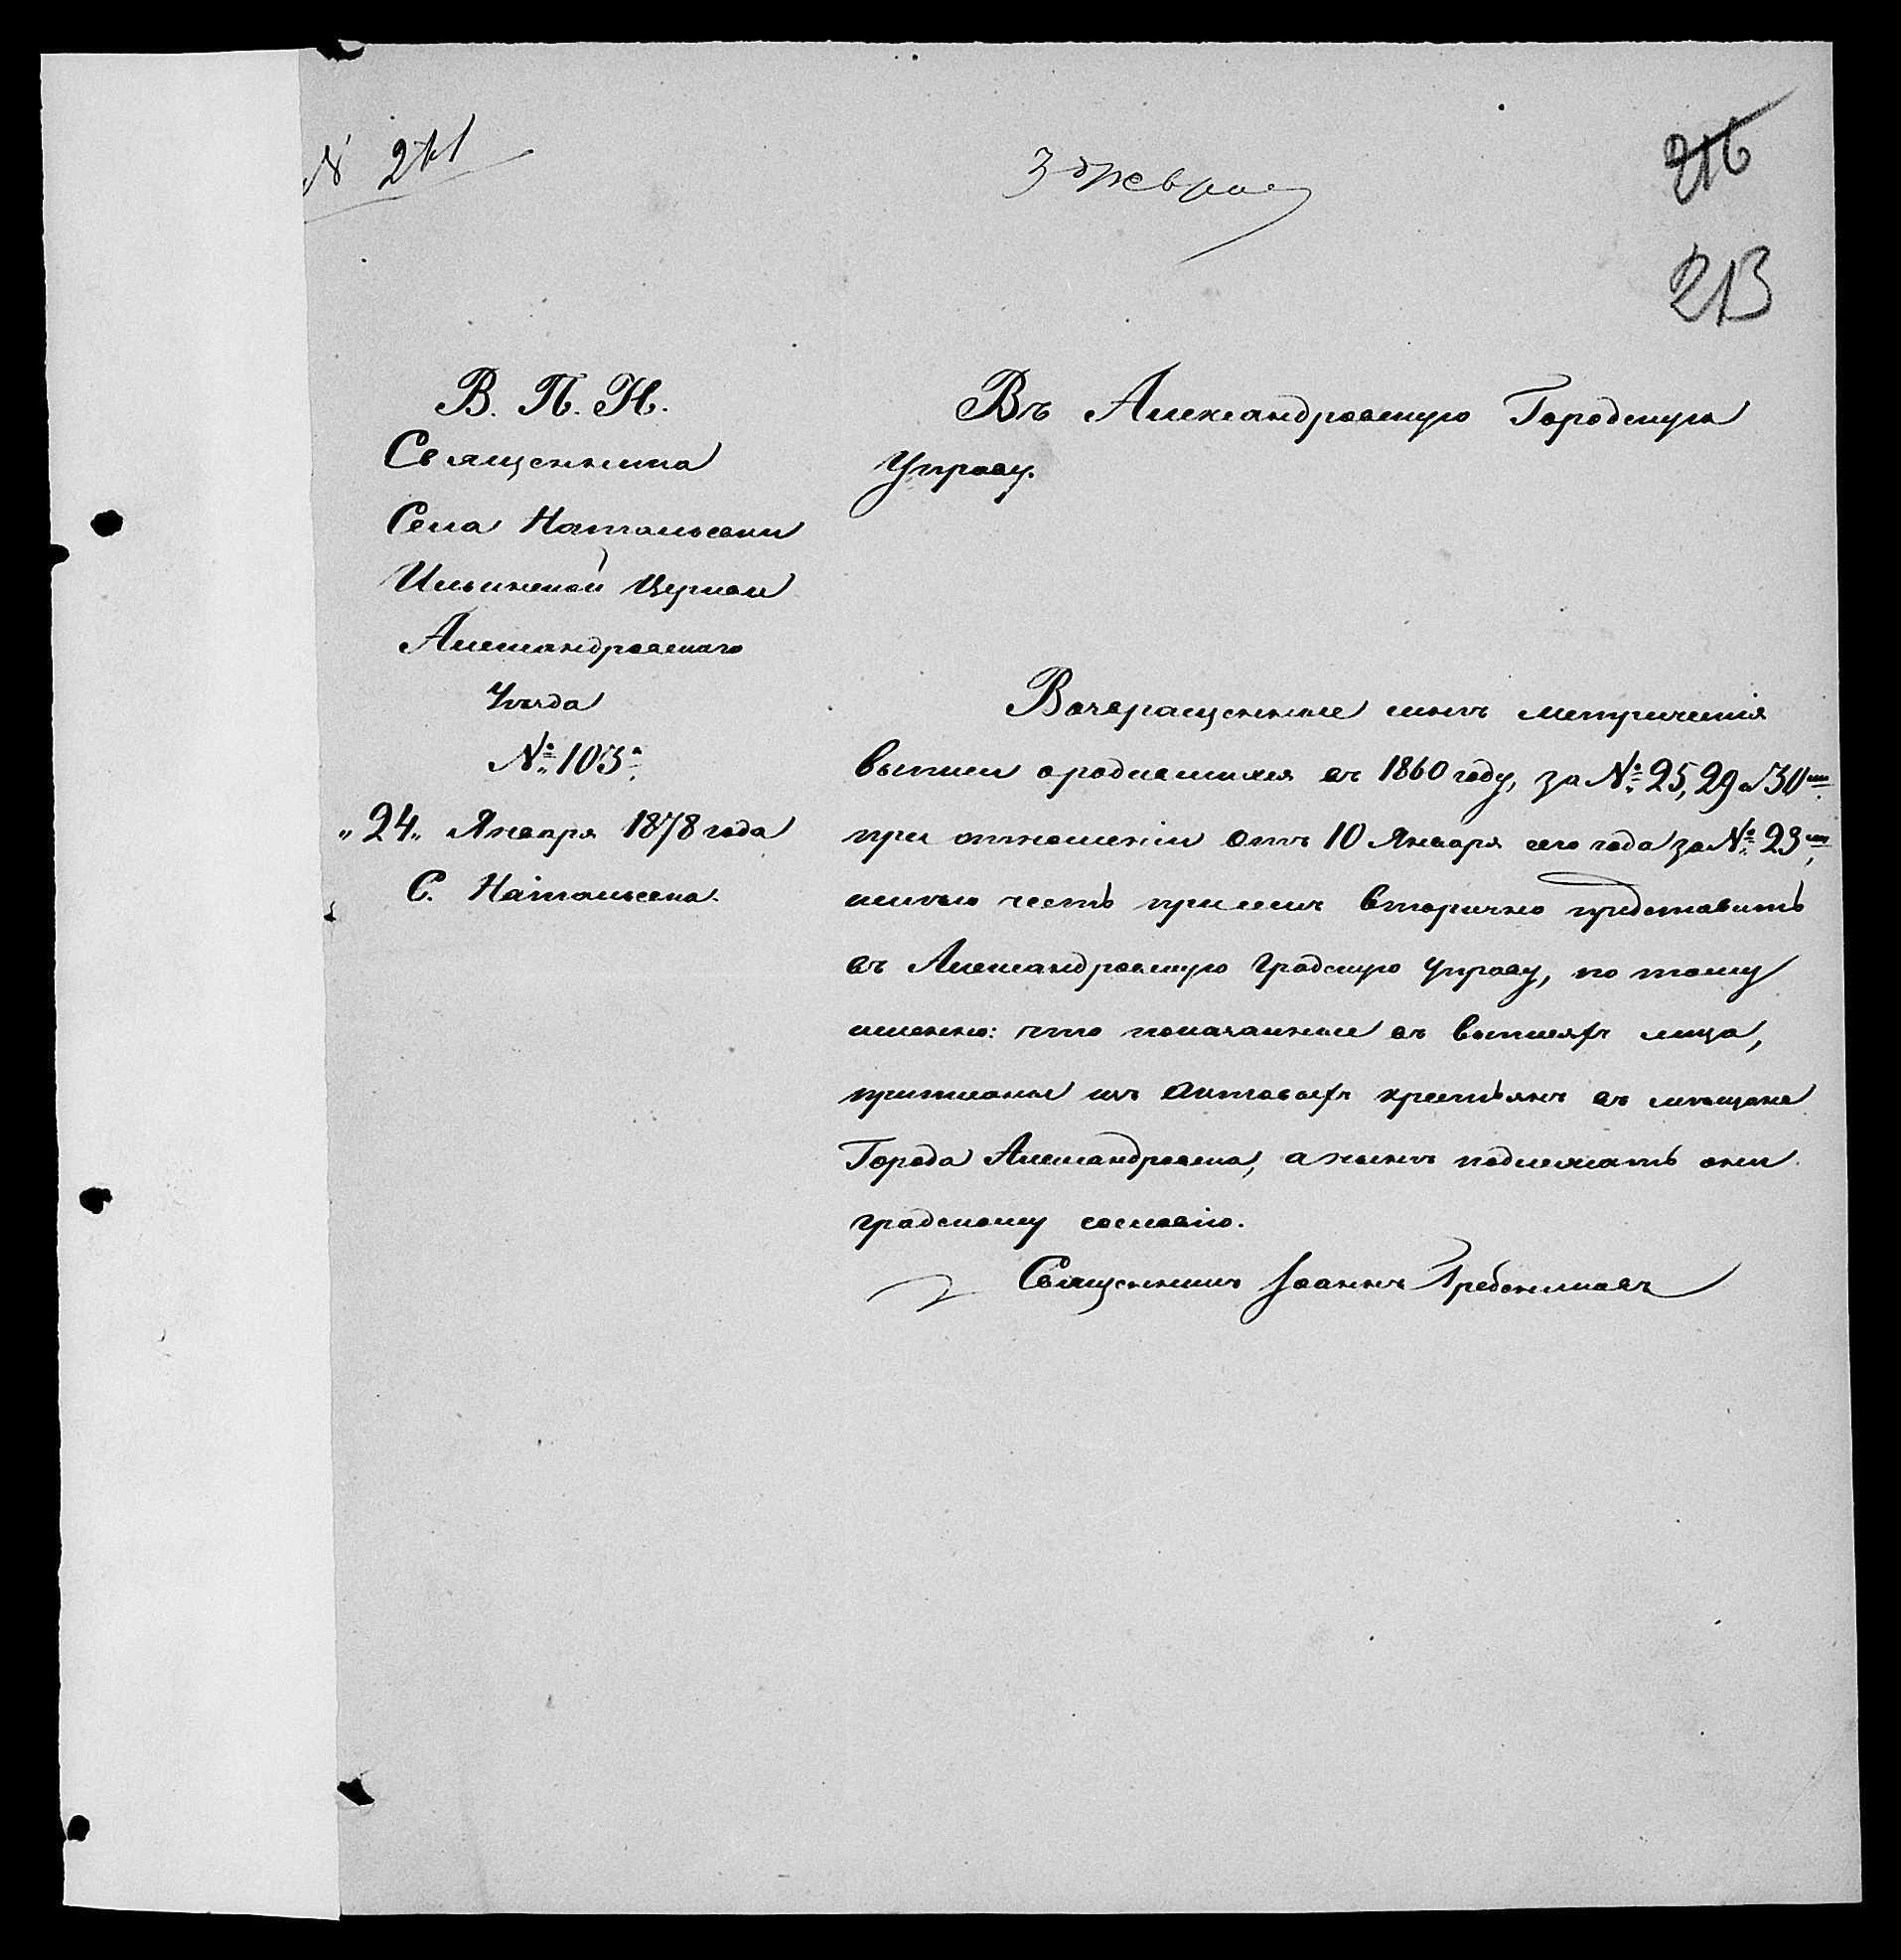 № 241
3 Февра
216
213
В. П. И.
Священника
Села Натальевки
Ильинской Церкви
Александровскаго
Уѣзда
№ 103.
„24„ Января 1878 года
С. Натальевка.
Въ Александровскую Городскую
Управу.
Возвращенные мнѣ метрическія
выписи о родившихся въ 1860 году, за № 25, 29 и 30
при отношеніи отъ 10 Января сего года за № 23
имѣю честь при семъ вторично представить
въ Александровскую Градскую Управу, по тому
именно: что показанные въ выписяхъ лица,
приписаны изъ крестьянъ въ мѣщане
Города Александровска, а потому подлежатъ они
градскому сословію.
Священникъ Іоаннъ Гребенниковъ